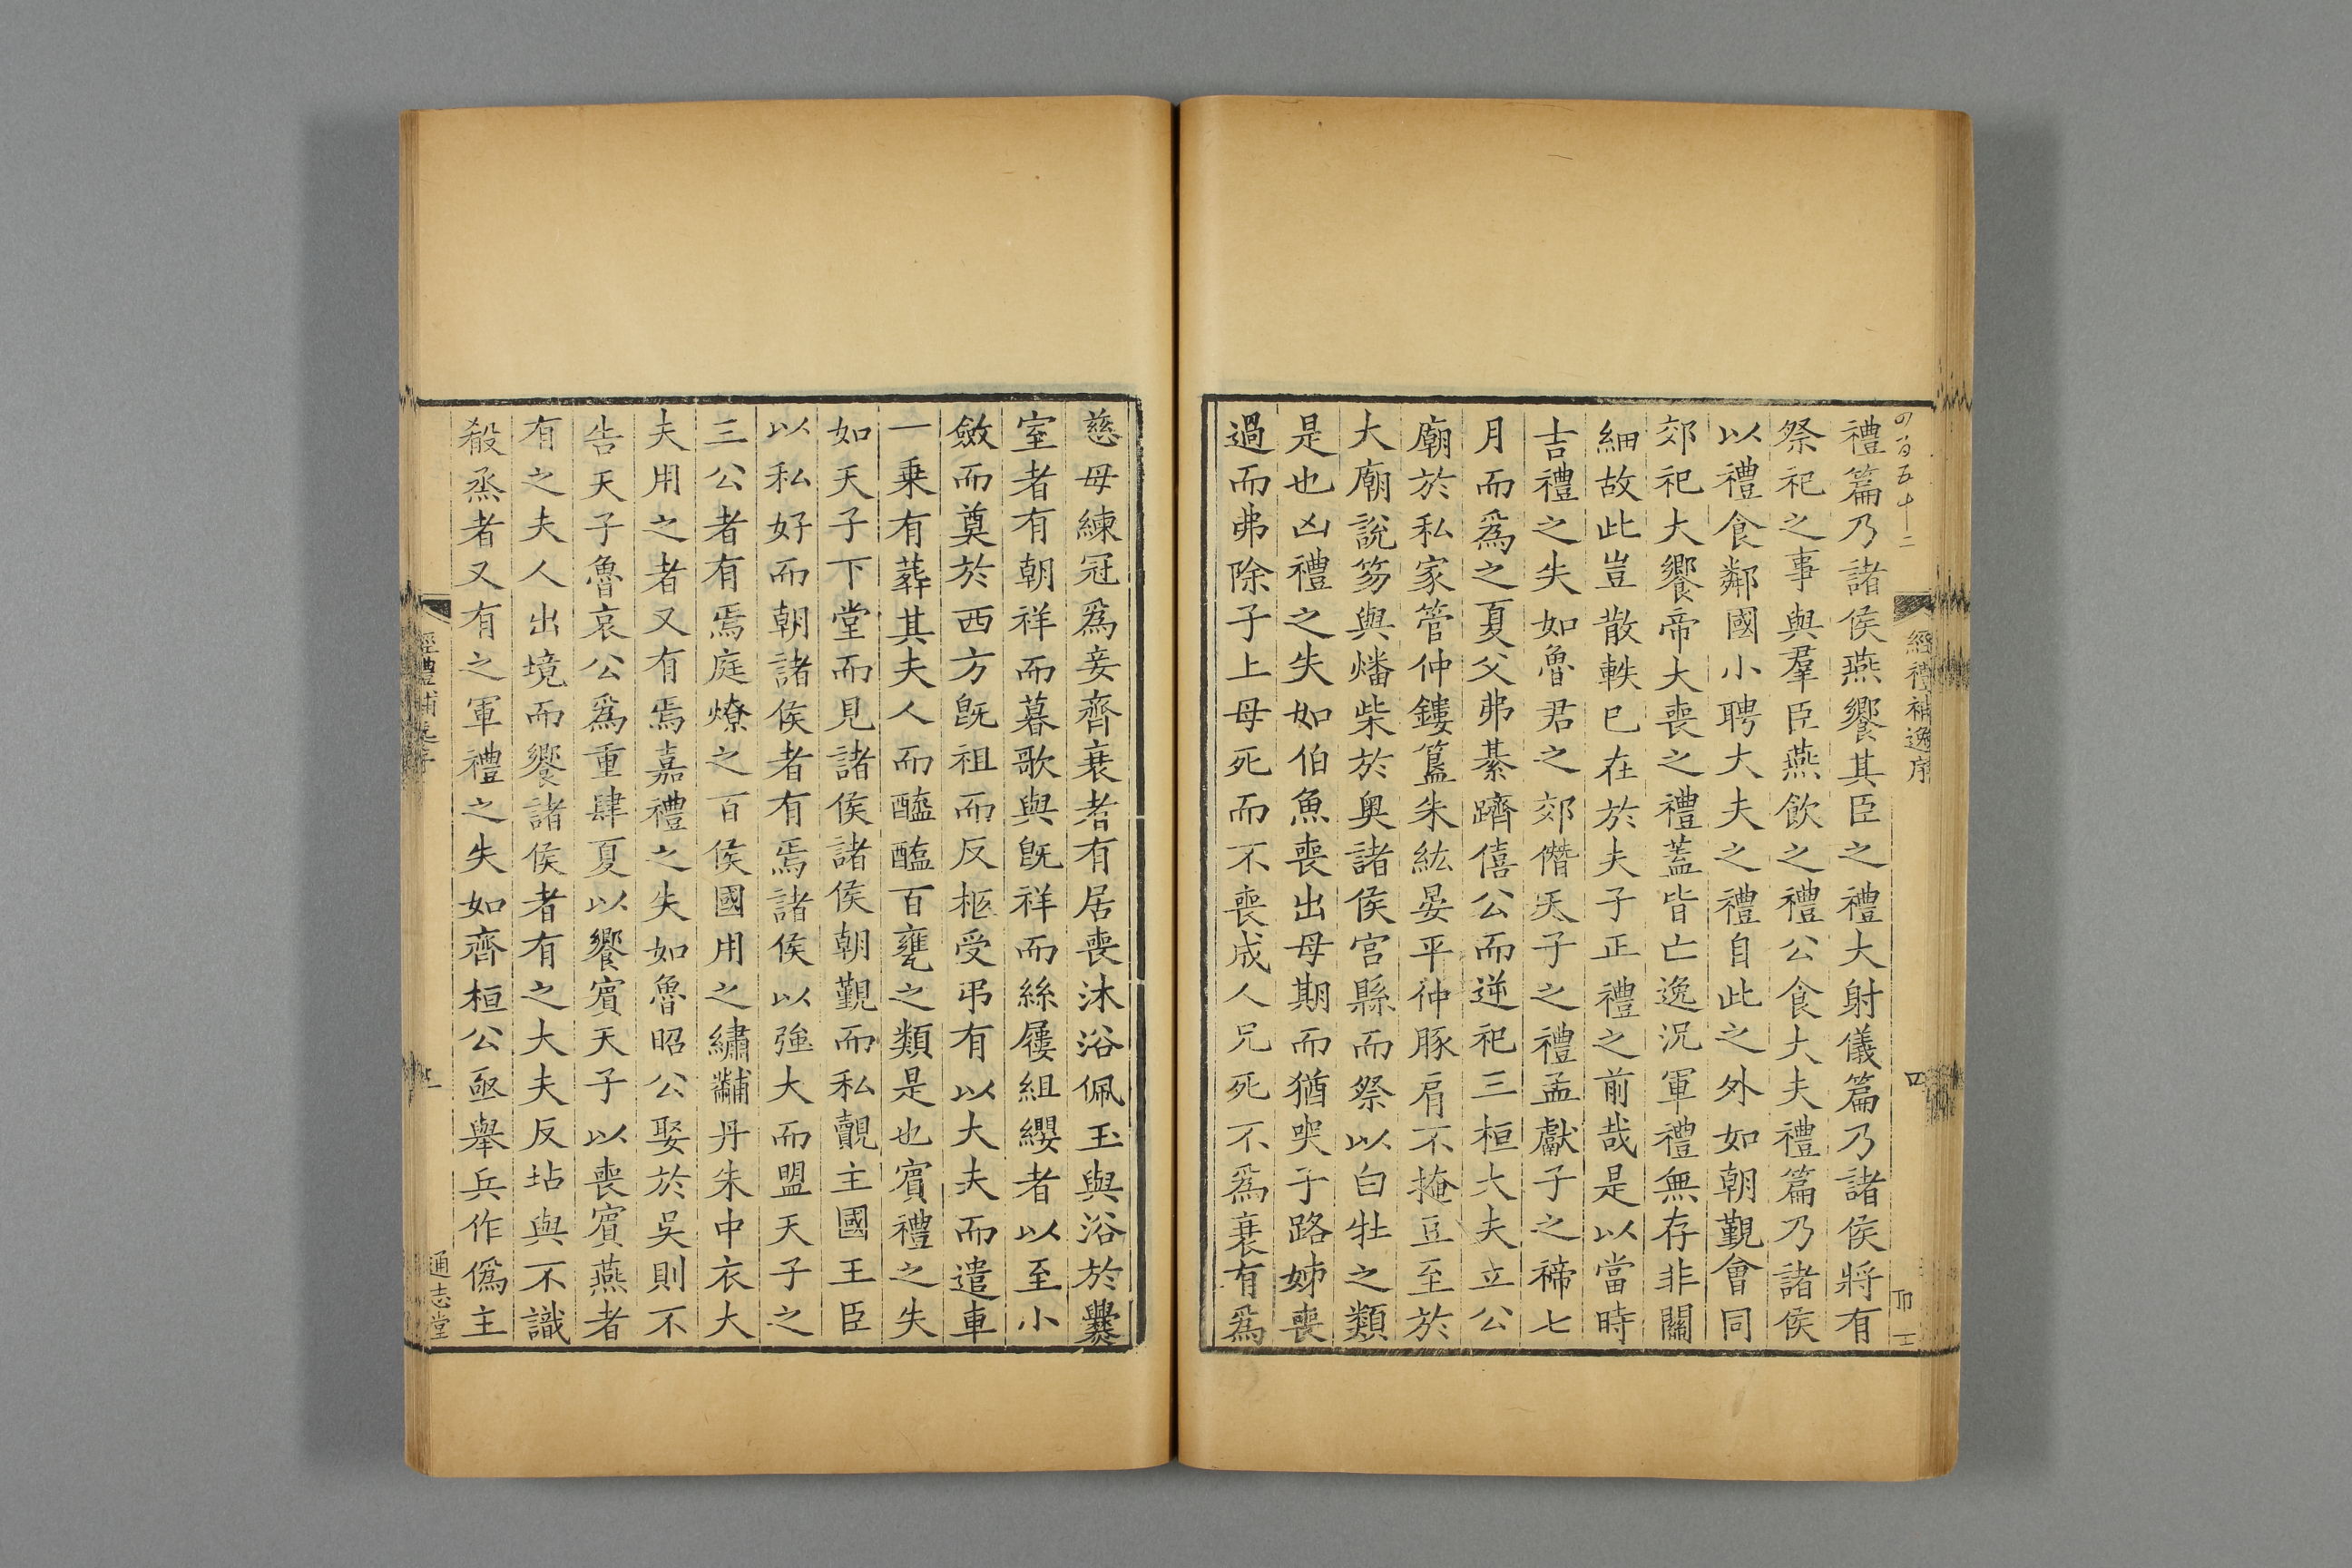 禮篇乃諸侯燕饗其臣之禮大射儀篇乃諸侯將有
祭祀之事與羣臣燕飲之禮公食大夫禮篇乃諸侯
以禮食鄰國小聘大夫之禮自此之外如朝覲會同
郊祀大饗帝大喪之禮蓋皆亡逸況軍禮無存非關
細故此豈散軼已在於夫子正禮之前哉是以當時
吉禮之失如魯君之郊僭天子之禮孟獻子之禘七
月而爲之夏父弗綦躋僖公而逆祀三桓大夫立公
廟於私家管仲鏤簋朱紘晏平仲豚肩不掩豆至於
大廟說笏與燔柴於奧諸侯宮縣而祭以白牡之類
是也凶禮之失如伯魚喪出母期而猶哭子路姊喪
過而弗除子上母死而不喪成人兄死不爲衰有爲
慈母練冠爲妾齊衰者有居喪沐浴佩玉與浴於爨
室者有朝祥而暮歌與旣祥而絲屨組纓者以至小
斂而奠於西方旣祖而反柩受弔有以大夫而遣車
一乘有葬其夫人而醯醢百罋之類是也賓禮之失
如天子下堂而見諸侯諸侯朝覲而私覿主國王臣
以私好而朝諸侯者有焉諸侯以強大而盟天子之
三公者有焉庭燎之百侯國用之繡黼丹朱中衣大
夫用之者又有焉嘉禮之失如魯昭公娶於吳則不
告天子魯哀公爲重肆夏以饗賓天子以喪賓燕者
有之夫人出境而饗諸侯者有之大夫反坫與不識
殽烝者又有之軍禮之失如齊桓公亟舉兵作僞主
四百五十二
經禮補逸序
四
通志堂